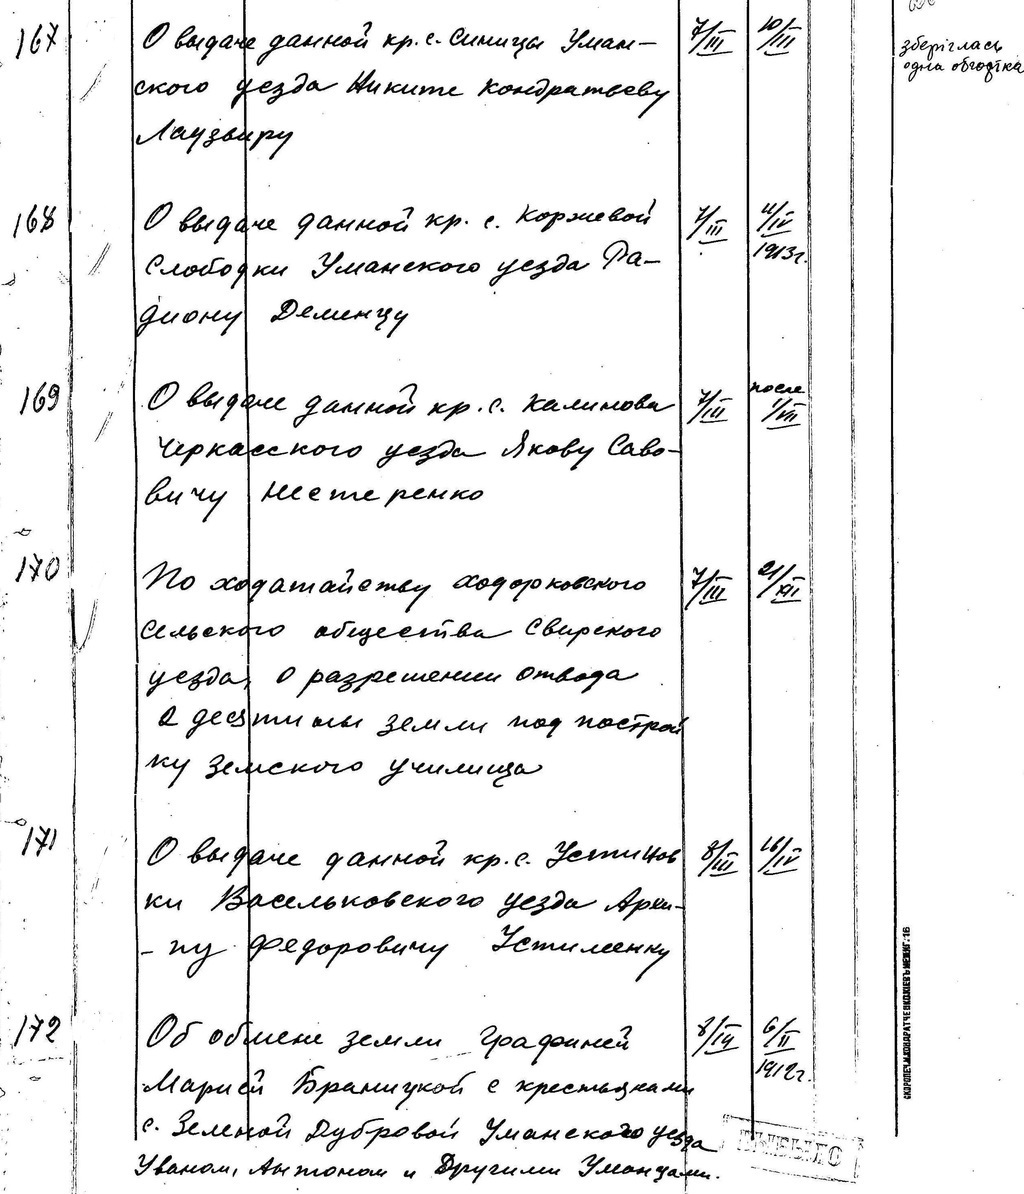 167 О выдаче данной кр. с. Синицы Уман- 7/III 10/III
ского уезда Никите Кондратьеву
Лаузвиру
зберіглась
одна обгортка
168 О выдаче данной кр. с. Коржевой 7/III 11/IV
Слободки Уманского уезда Ра- 1913г.
диону Деменцу
169 О выдаче данной кр. с. Калинова 7/III после 1/VII
Черкасского уезда Якову Саво-
вичу Нестеренко
170 По ходатайству ходорковского 7/III 21/XII
сельского общества Сквирского
уезда, о разрешении отвода
2 десятины земли под построй
ку земского училища
171 О выдаче данной кр. с. Устимов 8/III 16/IV
ки Васильковского уезда Архи-
-пу Федоровичу Устименку
172 Об обмене земли графиней 8/III 6/II
Марией Браницкой с крестьянами 1912г.
с. Зеленой Дубровой Уманского уезда
Иваном, Антоном и Другими Уманцами.